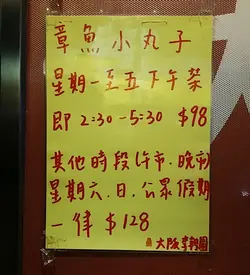 章魚小丸子
星期一至五下午茶
即 2:30-5:30 $98
其他時段(午市.晚市)
星期六.日.公眾假期
一律 $128
大阪